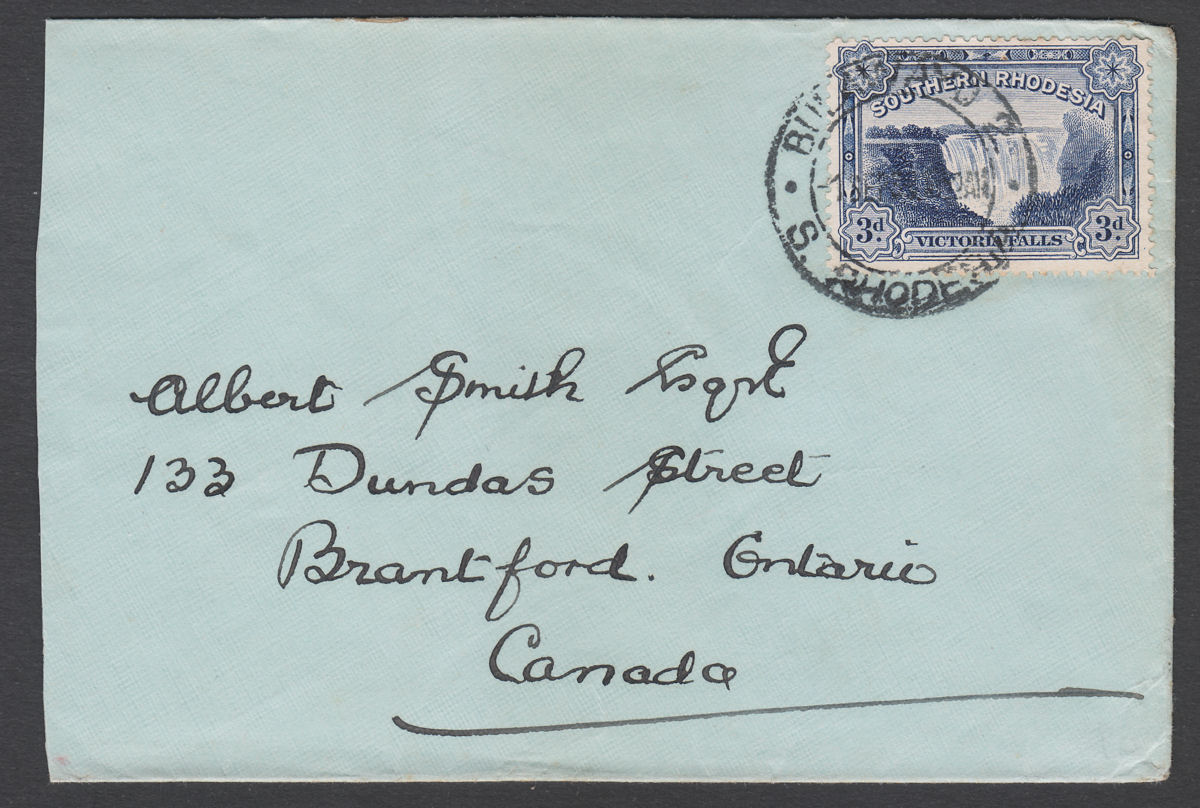 SOUTHERN RHODESIA
3d 3d
VICTORIA FALLS
BULAWAYO 2
S. RHODESIA
Albert Smith Esqre
133 Dundas Street
Brantford. Ontario
Canada